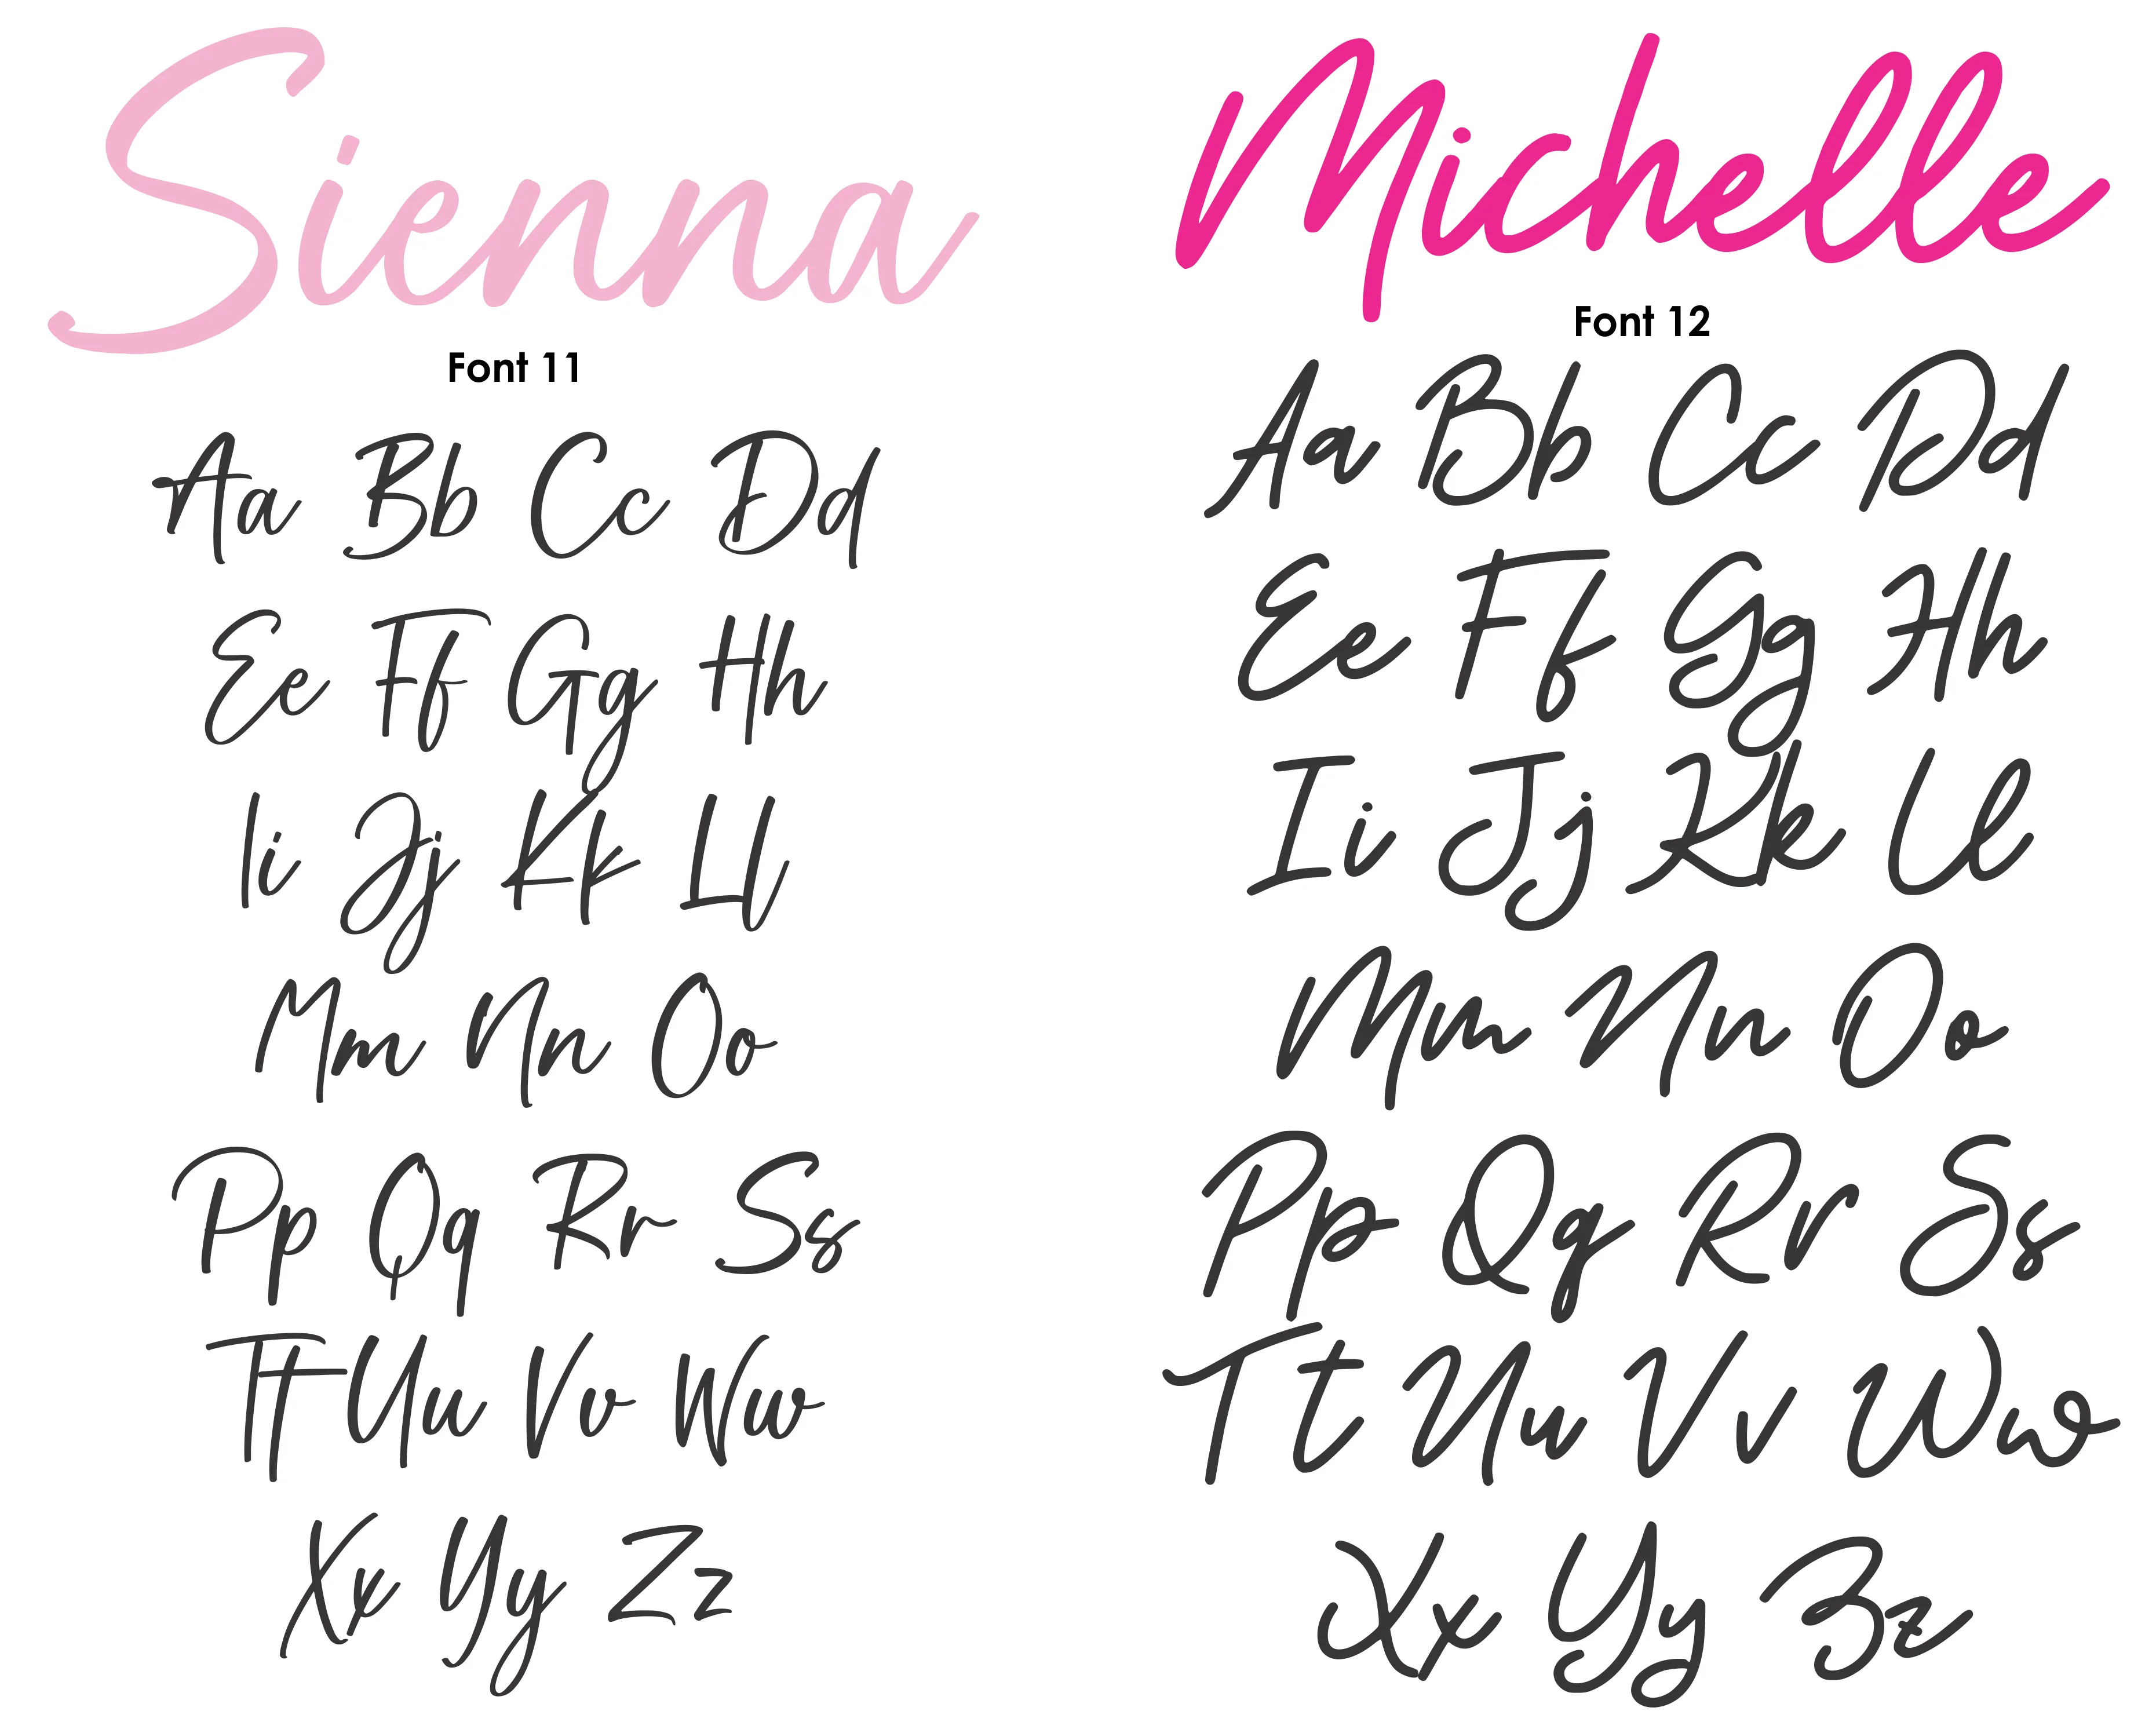 Sienna
Font 11
Aa Bb Cc Dd
Ee Ff Gg Hh
Ii Jj Kk Ll
Mm Nn Oo
Pp Qq Rr Ss
Tt Uu Vv Ww
Xx Yy Zz
Michelle
Font 12
Aa Bb Cc Dd
Ee Ff Gg Hh
Ii Jj Kk Ll
Mm Nn Oo
Pp Qq Rr Ss
Tt Uu Vv Ww
Xx Yy Zz